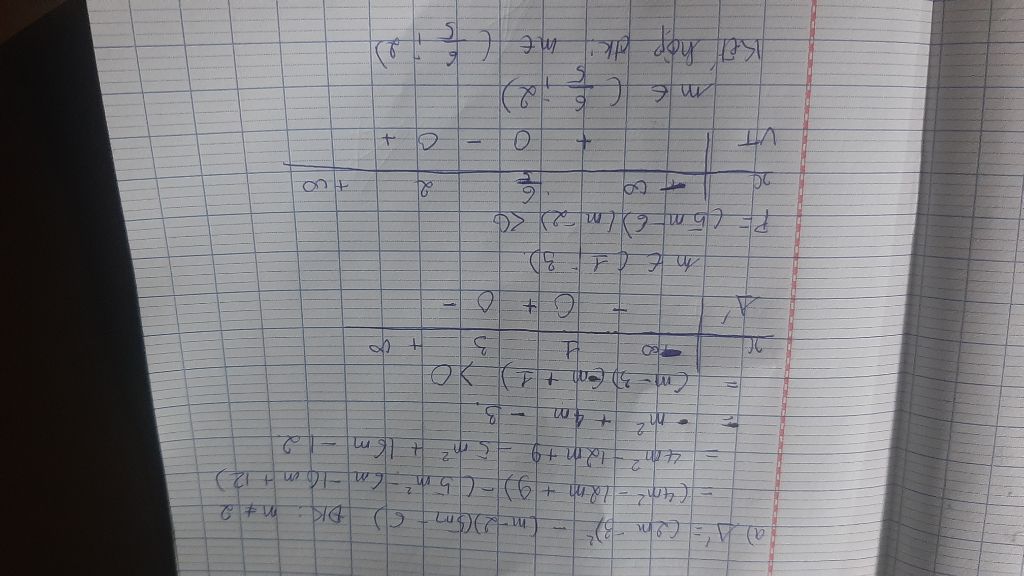 a) Δ' = (2m - 3)² - (m - 2)(5m - 6) ĐK: m ≠ 2
= (4m² - 12m + 9) - (5m² - 6m - 10m + 12)
= 4m² - 12m + 9 - 5m² + 16m - 12
= - m² + 4m - 3.
= (m - 3)(-m + 1) > 0
x | -∞ 1 3 +∞
Δ' | - 0 + 0 -
m ∈ (1; 3)
P = (5m - 6)(m - 2) < 0
x | -∞ 6/5 2 +∞
VT | + 0 - 0 +
m ∈ (6/5; 2)
Kết hợp đk: m ∈ (6/5; 2)